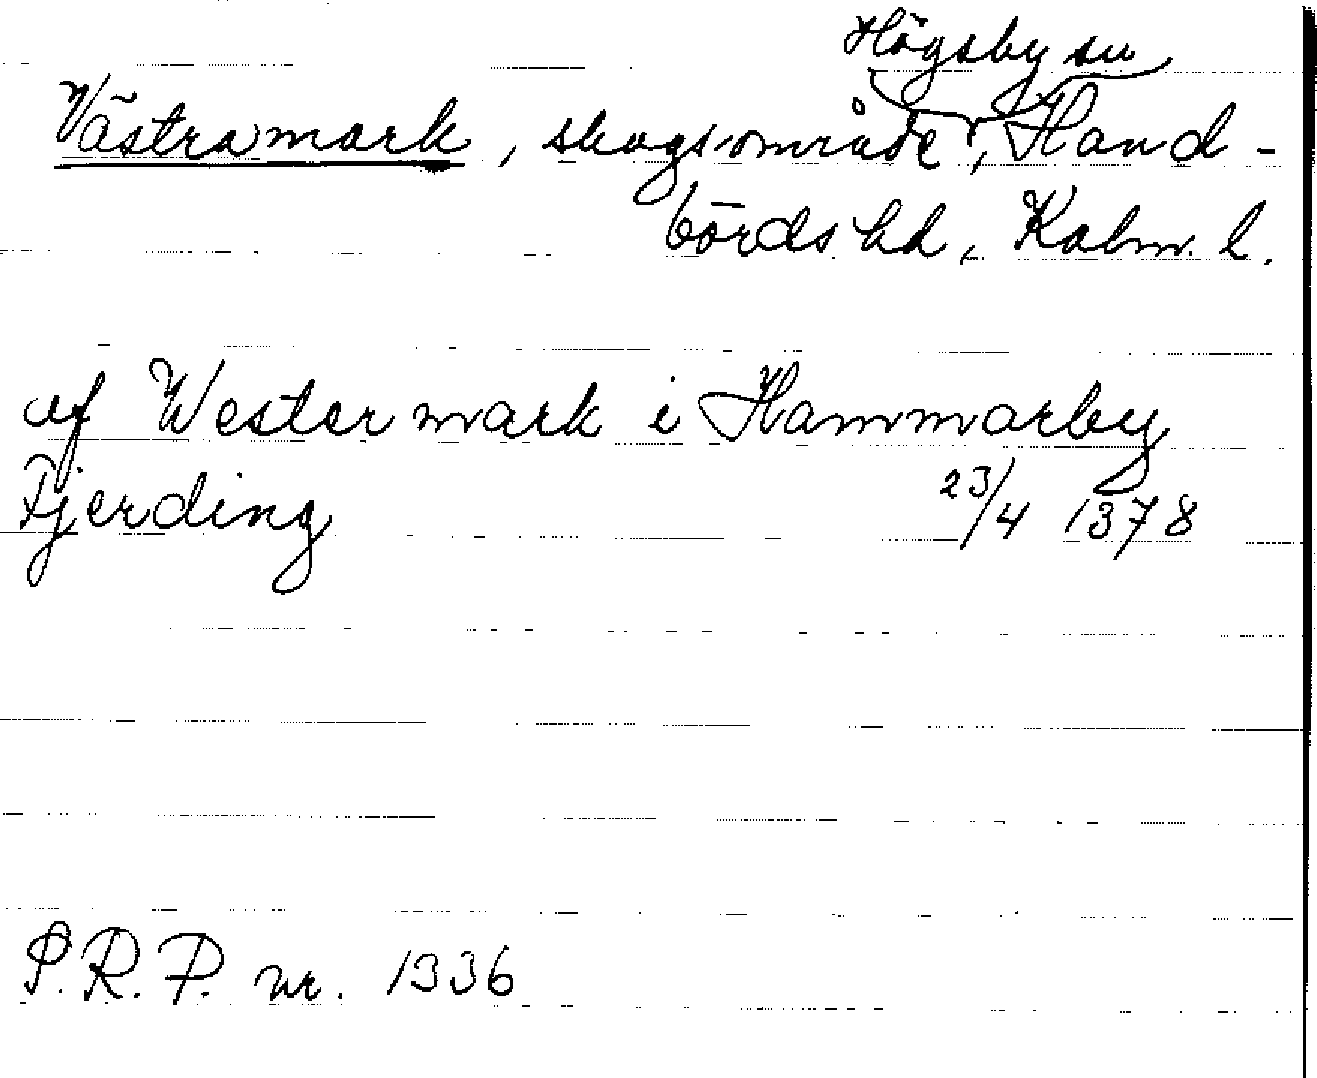 Högsby sn
Västramark, skogsområde, Hand-
börds hd, Kalm. l.
af Westermark i Hammarby
Fjerding 23/4 1378
S.R.P. nr. 1336